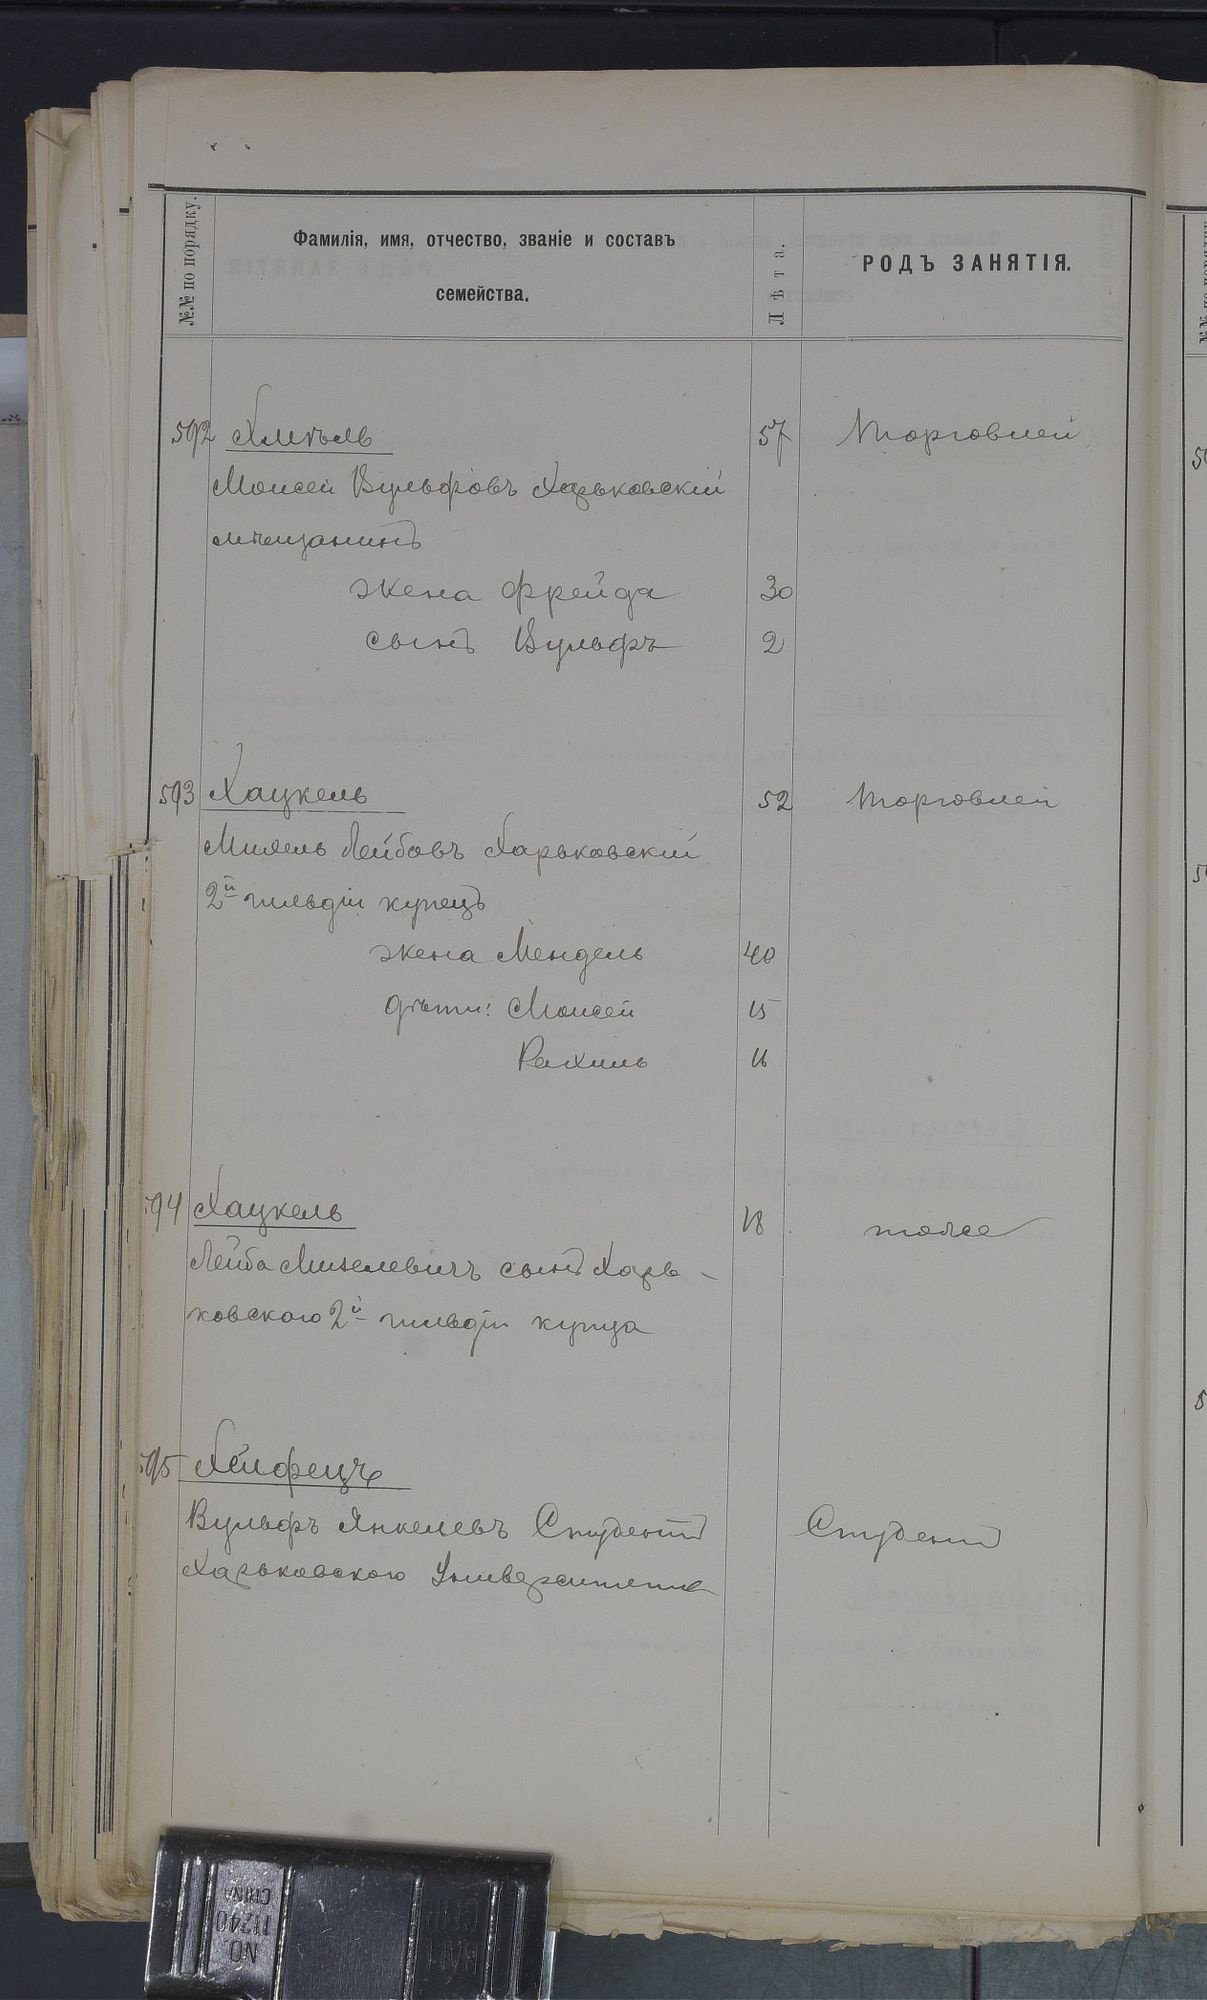 №№ по порядку.
Фамилія, имя, отчество, званіе и составъ
семейства.
Лѣта.
РОДЪ ЗАНЯТІЯ.
592 Хмѣль 57 Торговлей
Моисей Вульфовъ Харьковскій
мѣщанинъ
жена Фрейда 30
сынъ Вульфъ 2
593 Хацкель 52 Торговлей
Михель Лейбовъ Харьковскій
2й гильдіи купецъ
жена Мендель 40
дѣти: Моисей 15
Рахиль 11
594 Хацкель 18 тоже
Лейба Михелевичъ сынъ Харь-
ковского 2й гильдіи купца
595 Хейфецъ
Вульфъ Янкелевъ Студентъ Студент
Харьковского Университета
NO. 11240
CHINA